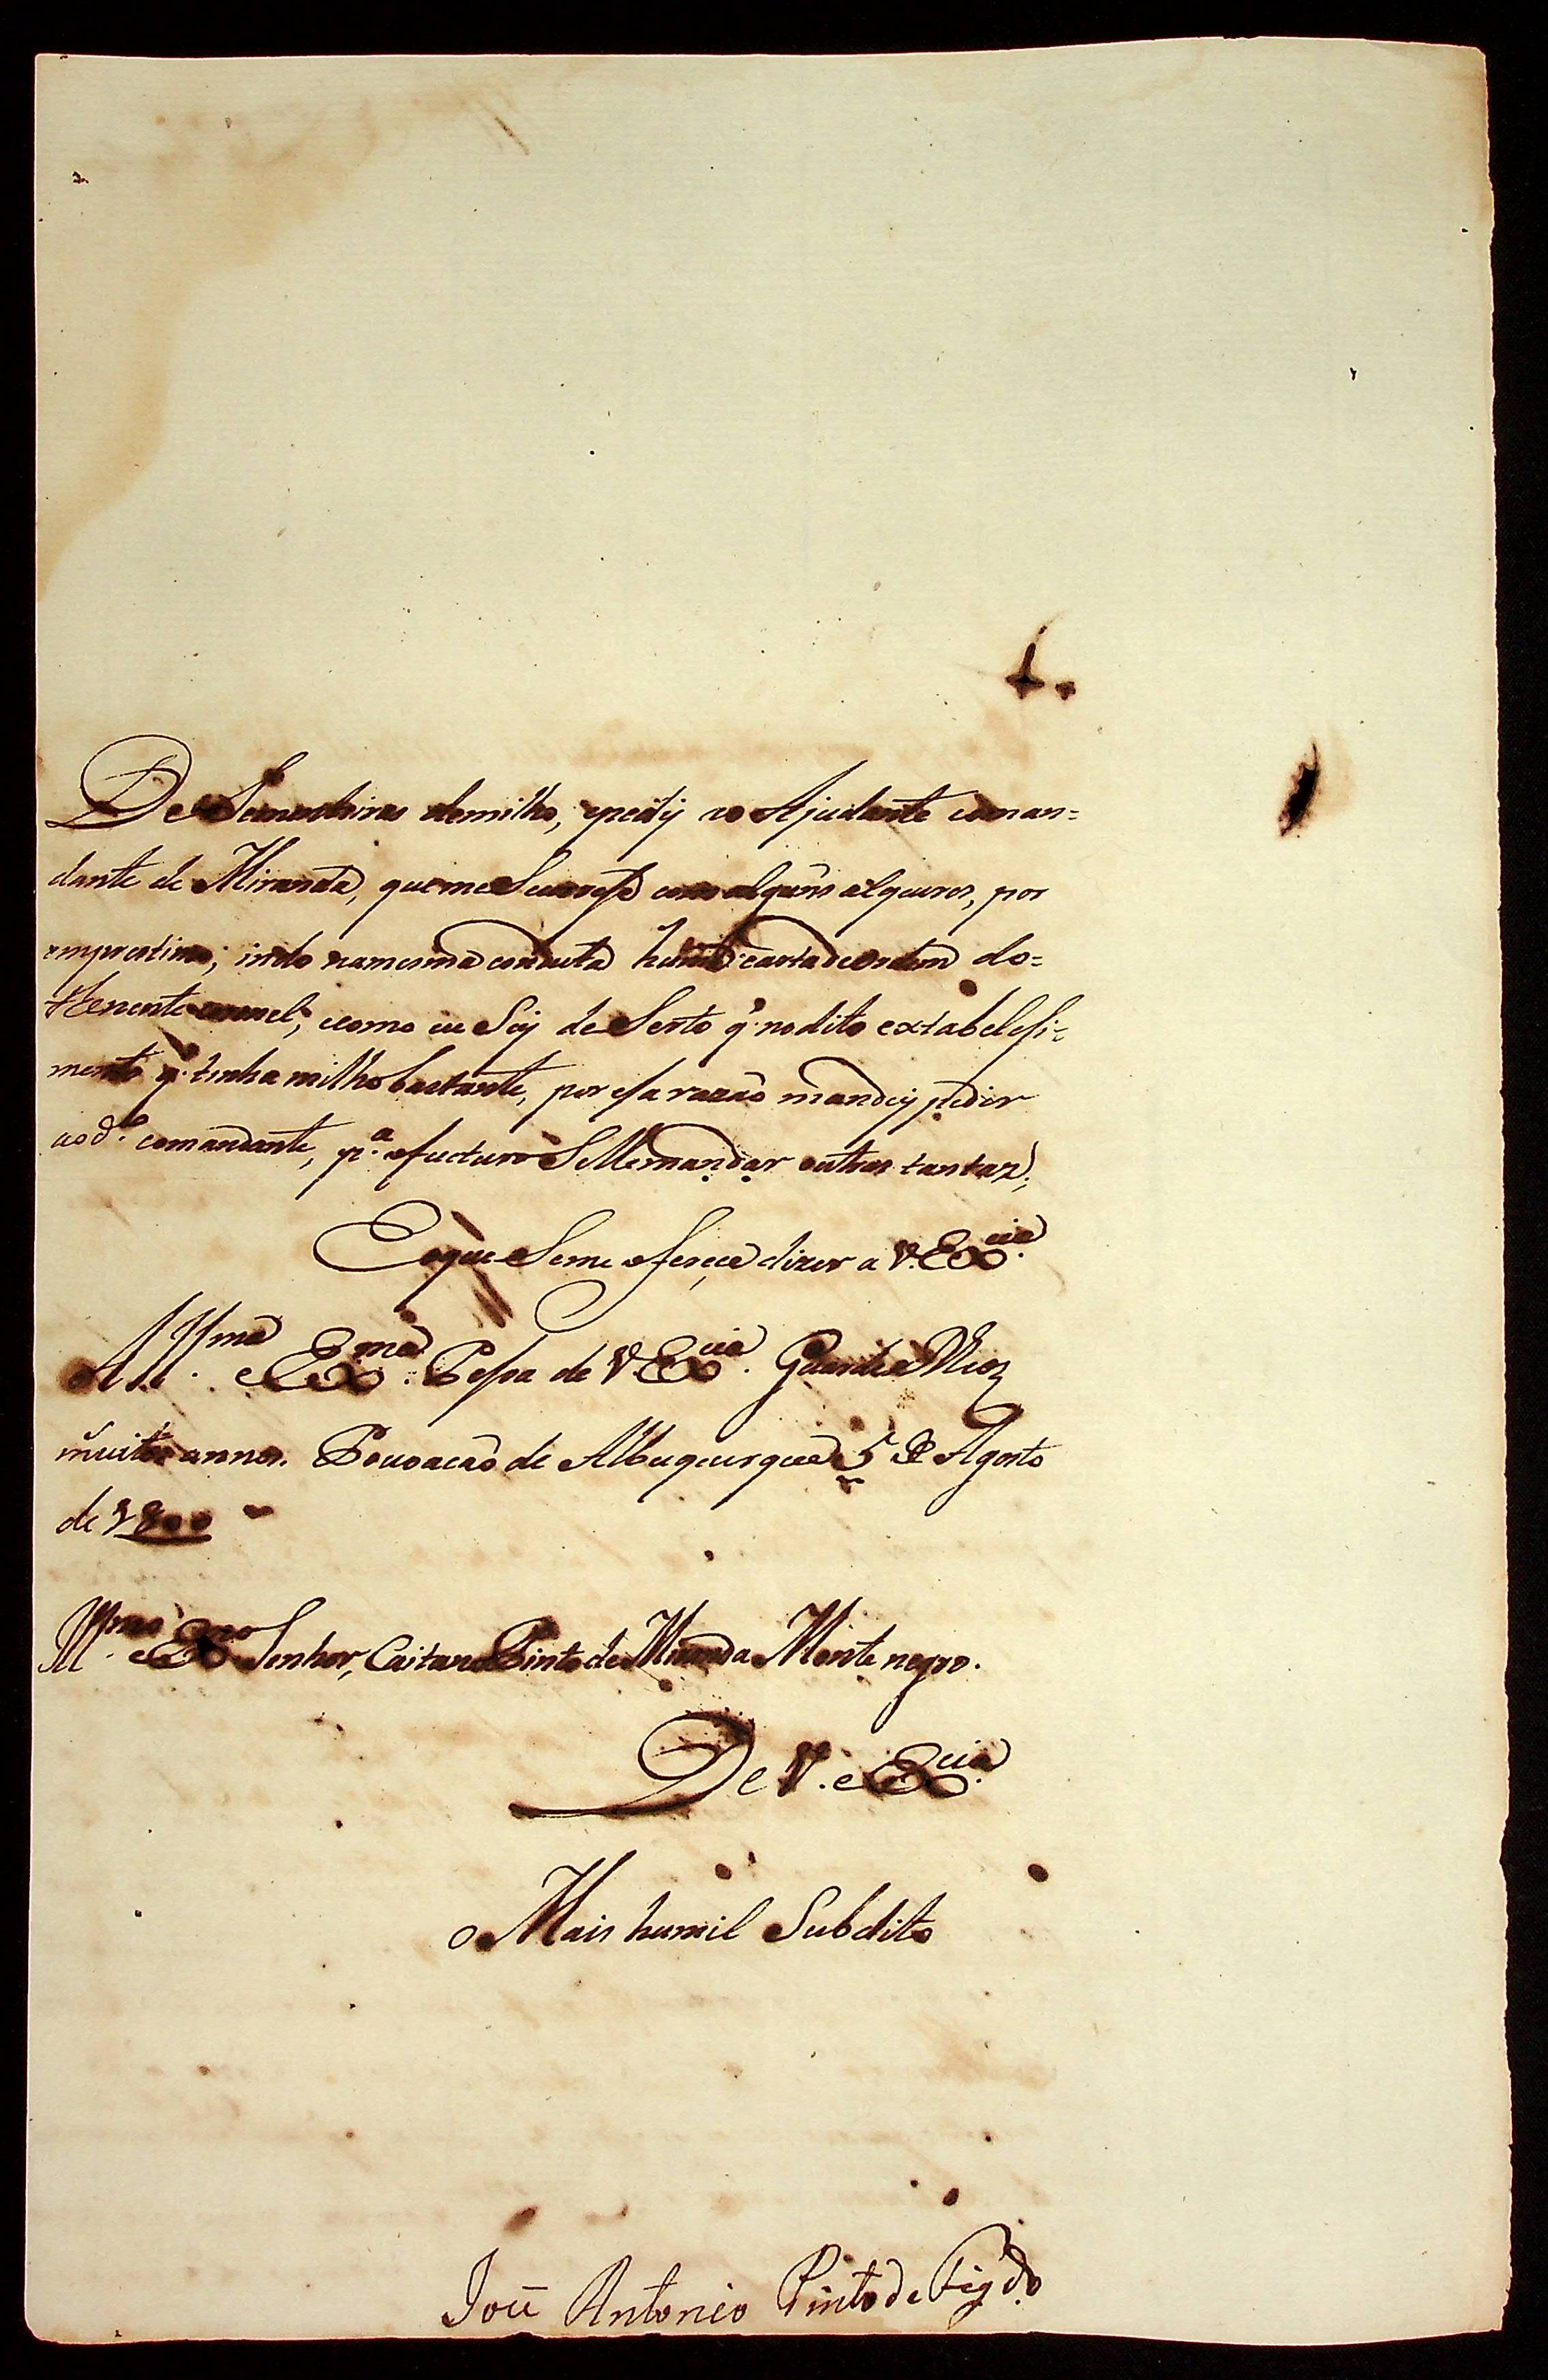 De Semadeiras demilho, epedij ao Ajudante coman=
dante de Miranda, queme Secorese com alguns alqueires, por
emprestimo; indo namesma conduta huma cartadeordem do=
Thenente coronel, ecomo eu Sey de Serto q̃ nodito extabelesi=
mento q̃ tinha milho bastante, por esa razaõ mandey pedir
aod.º comandante, p.ª ofucturo SeLhemandar outras tantaz,
Eoque Seme oferece dizer a V. Ex.cia
A Ill.ma e Ex.ma Pesoa de V. Ex.cia Guarde a Deos
muitos annos. Povoacaõ de Albuquerque 5 de Agosto
de 1800
Ill.mo e Ex.mo Senhor, Caitano Pinto de Miranda Monte negro.
De V. Ex.cia
o Mais humil Subdito
Joze Antonio Pinto de Fig.do